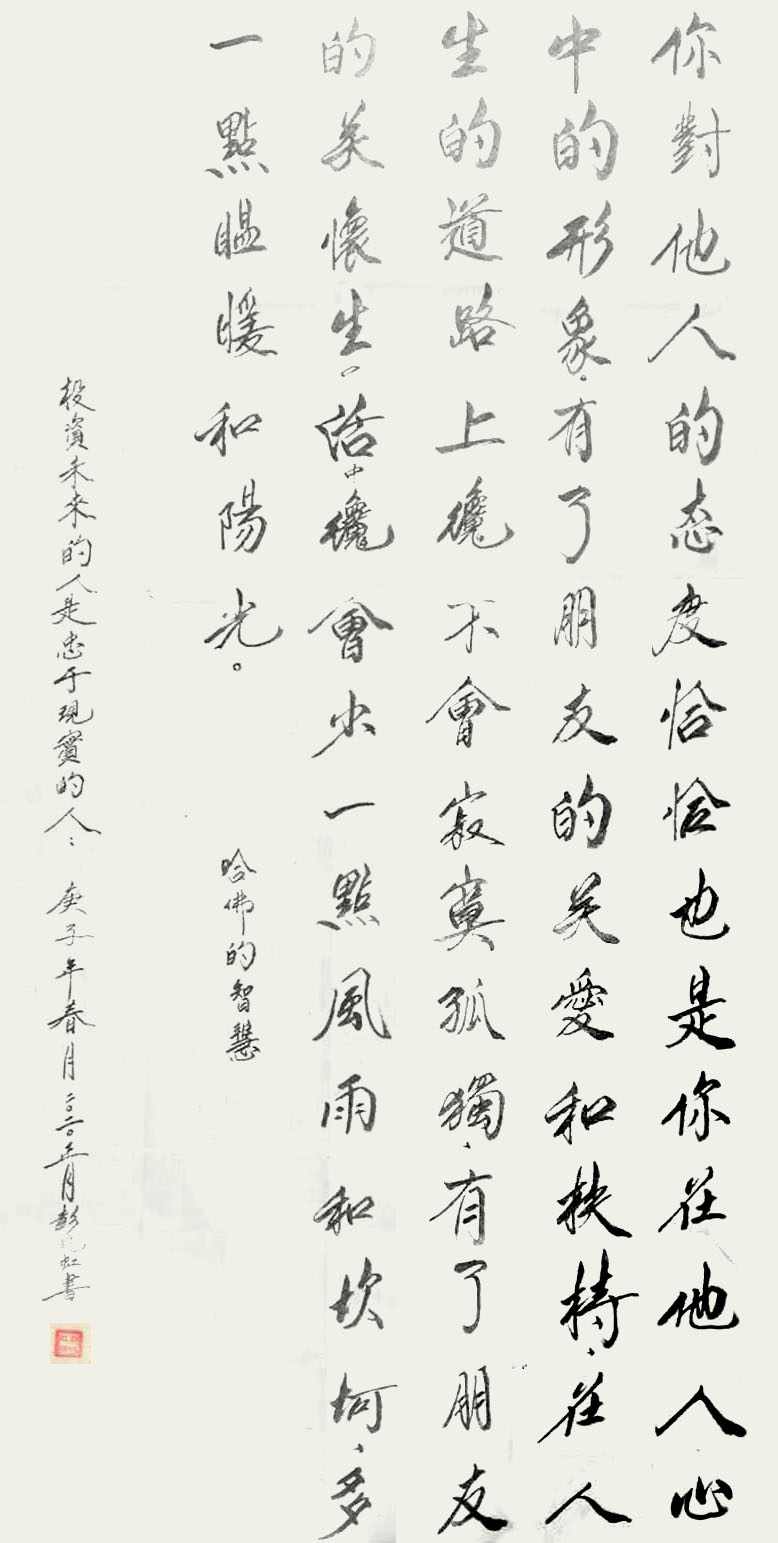 你對他人的态度恰恰也是你在他人心
中的形象、有了朋友的关爱和扶持、在人
生的道路上纔不會寂寞孤獨、有了朋友
的关懷生。活中纔會少一點風雨和坎坷、多
一點温暖和陽光。
哈佛的智慧
投資未來的人是忠于現實的人: 庚子年春月二〇二〇年 月彭 虹書